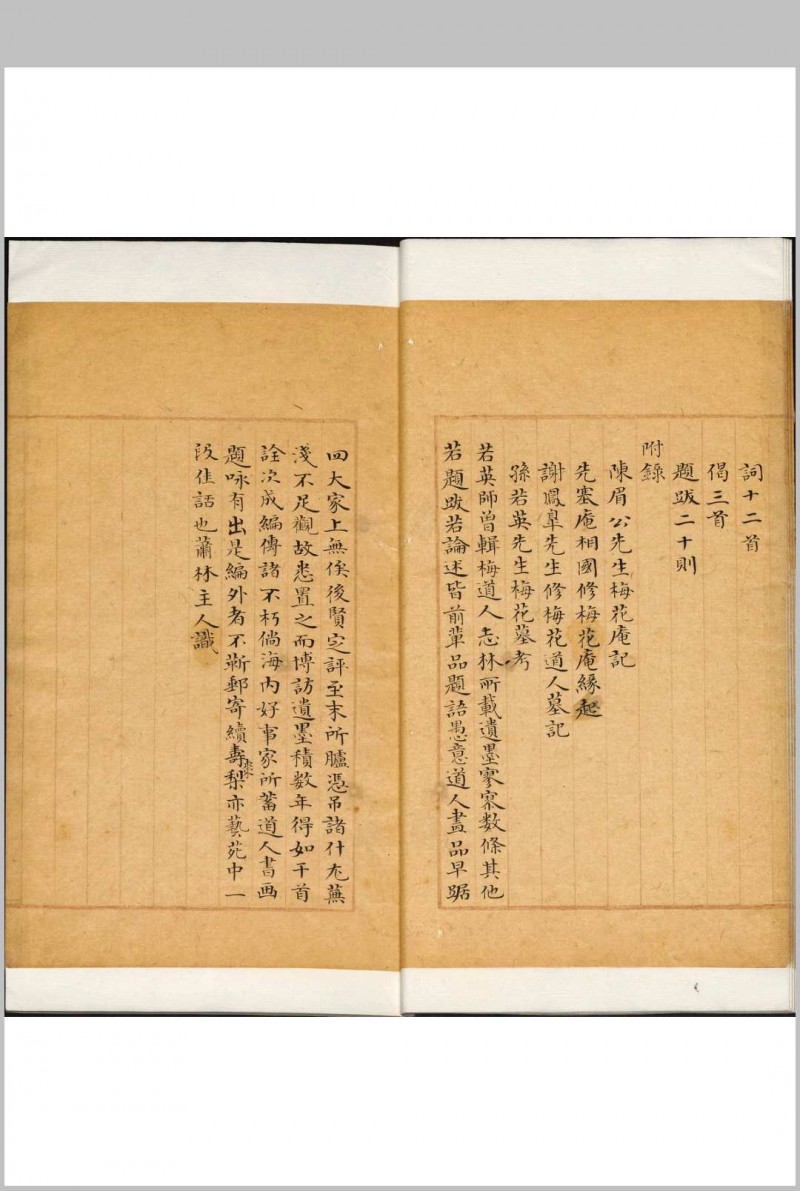 詞十二首
偈三首
題跋二十則
附錄
陳眉公先生梅花庵記
先塞庵相國修梅花庵緣起
謝鳳皐先生修梅花道人墓記
孫若英先生梅花墓考
若英師曽輯梅道人志林所載遺墨寥寥数條其他
若題跋若論述皆前軰品題語愚意道人畫品早踞
四大家上無俟後賢定評至末所臚憑吊諸什尤蕪
淺不足觀故悉置之而博訪遺墨積数年得如干首
詮次成編傳諸不朽倘海内好事家所蓄道人書画
題咏有出是編外者不靳郵寄續壽棗梨亦藝苑中一
段佳話也蕭林主人識